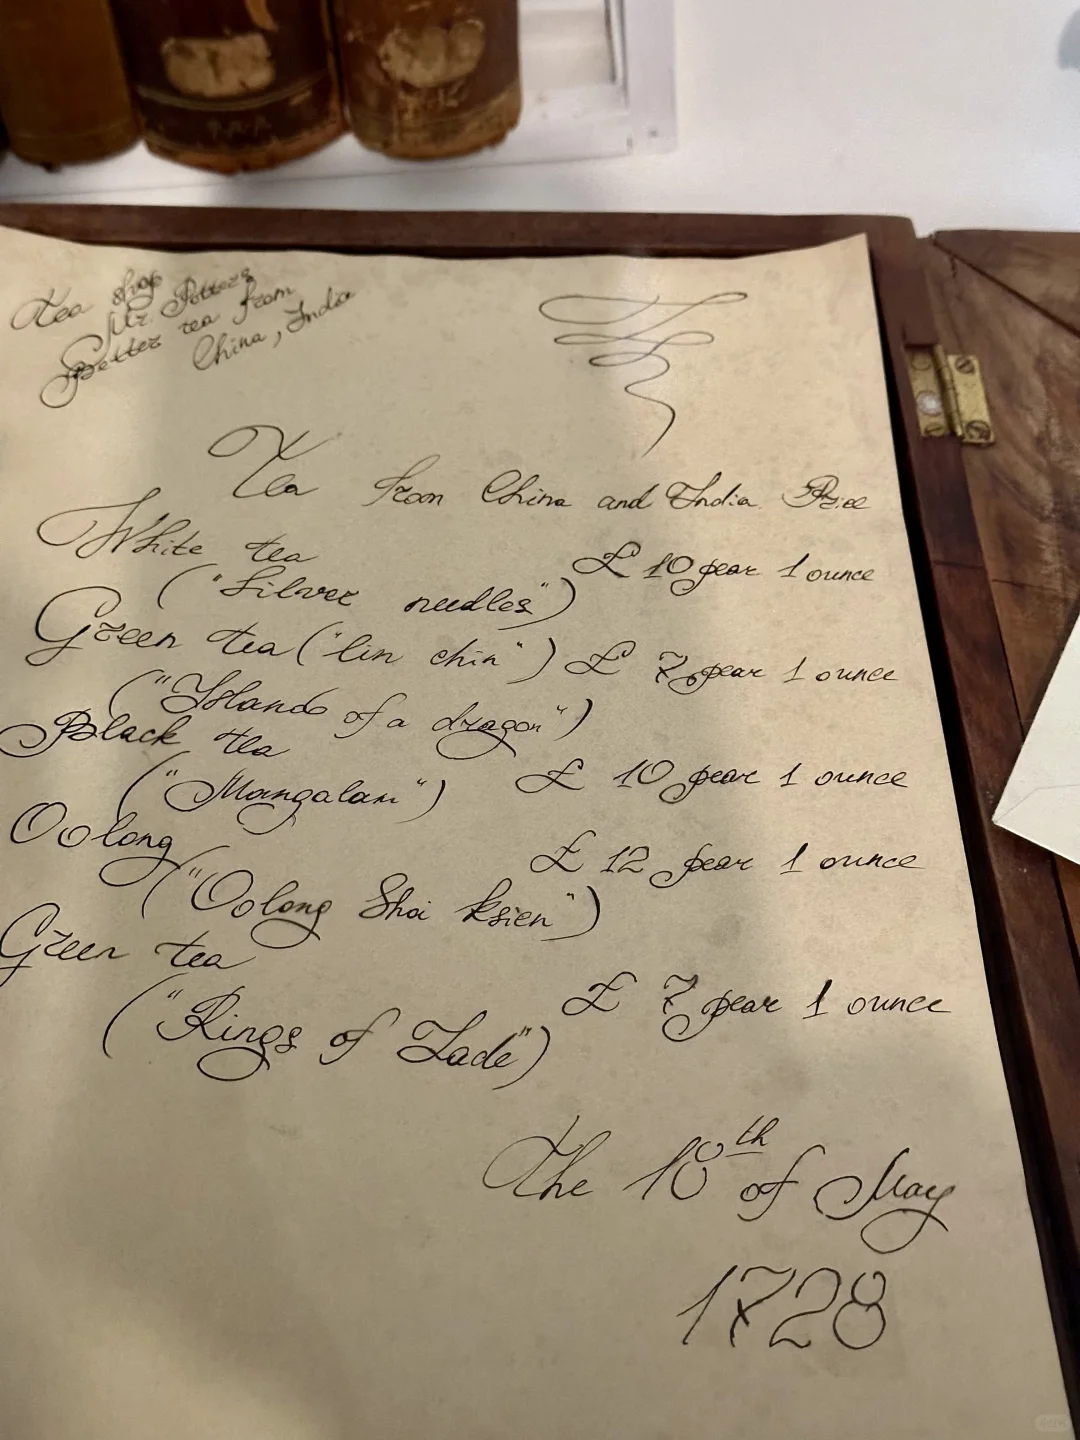 Tea shop
Mr. Potters
Better tea from
China, India
Tea from China and India Price
White tea
("Silver needles") £ 10 pear 1 ounce
Green tea ("lin chin") £ 7 pear 1 ounce
("Islands of a dragon")
Black tea
("Mangalam") £ 10 pear 1 ounce
Oolong £ 12 pear 1 ounce
("Oolong Shoi ksien")
Green tea
("Rings of Jade") £ 7 pear 1 ounce
The 10th of May
1728